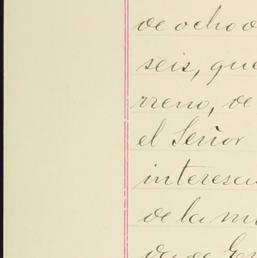 de ocho d
seis, que
rreno, de
el Señor
interesa
de la m
da de